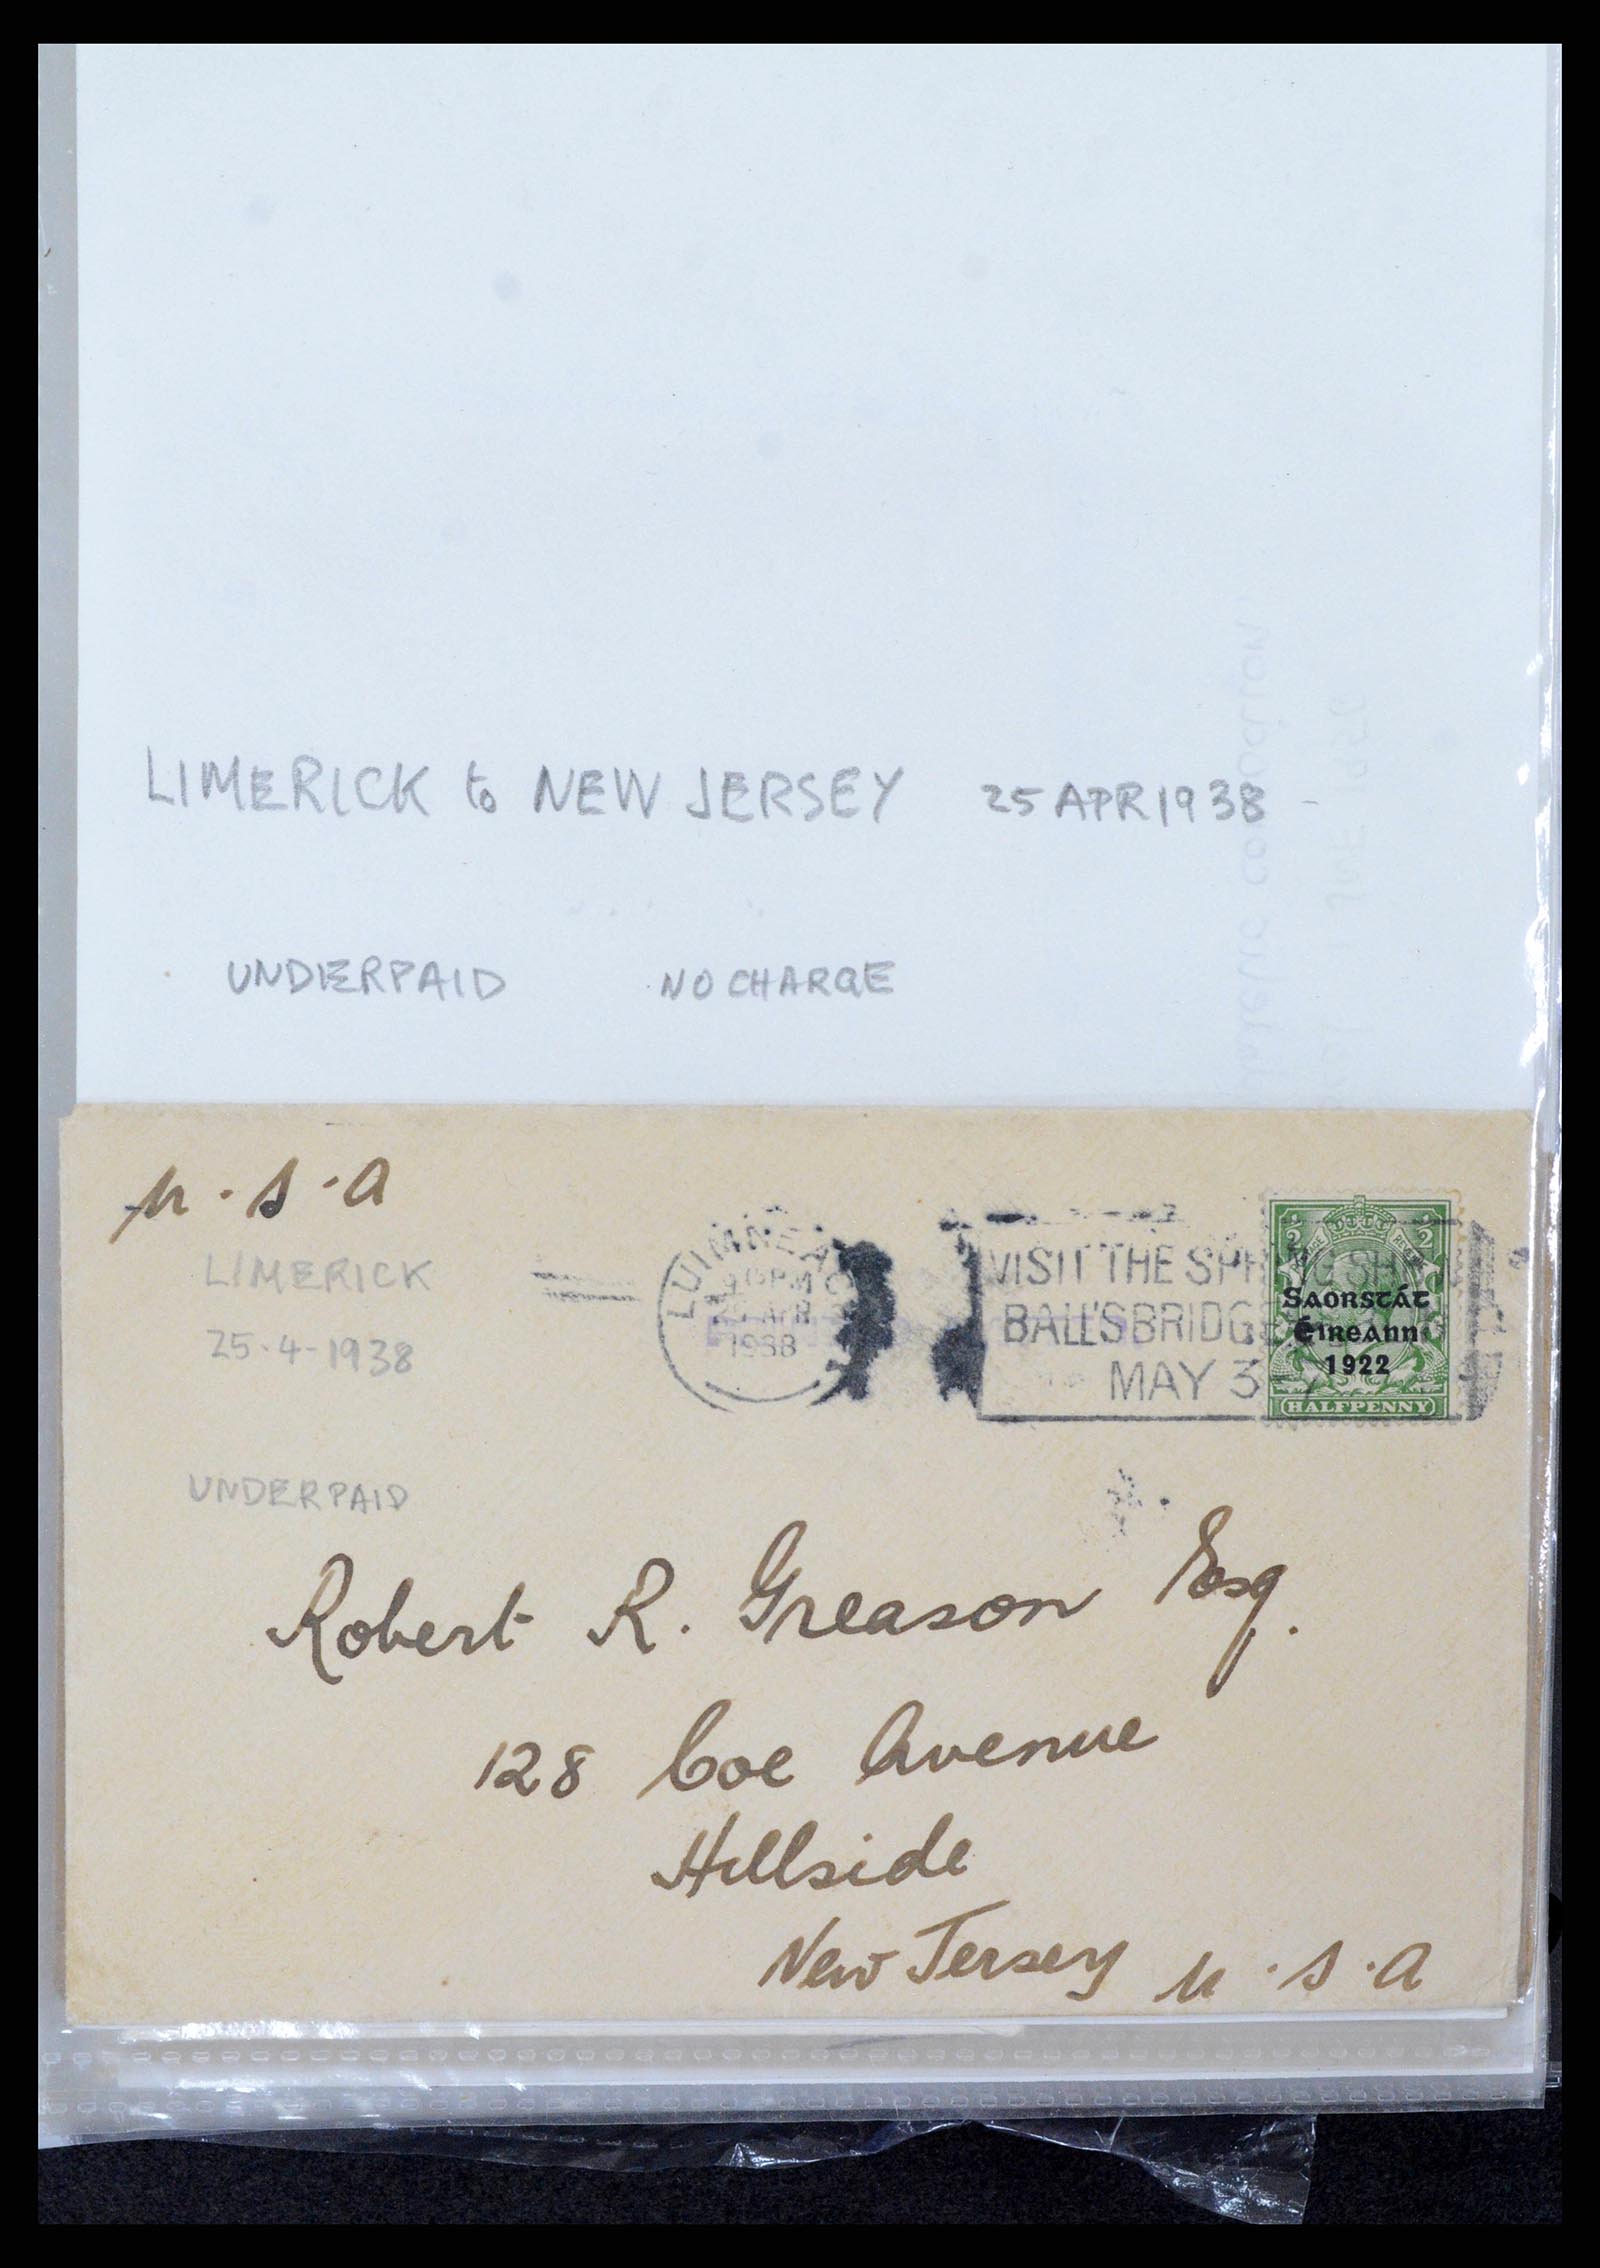 LIMERICK to NEW JERSEY 25 APR 1938 -
UNDERPAID NO CHARGE
U.S.A
LIMERICK
25-4-1938
UNDERPAID
LUIMNEA
PM
APR
1938
VISIT THE SPRING SH
BALL'S BRIDGE
MAY 3 - 7
2 2
SAORSTÁT
ÉIREANN
1922
HALFPENNY
Robert R. Greason Esq.
128 Coe Avenue
Hillside
New Jersey U.S.A